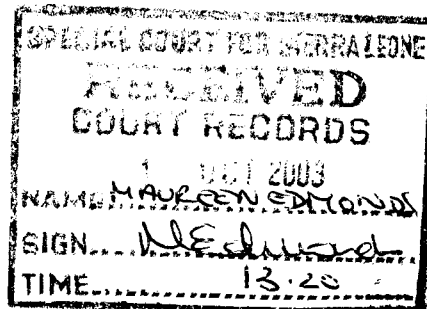 SPECIAL COURT FOR SIERRA LEONE
RECEIVED
COURT RECORDS
1 OCT 2003
NAME MAUREEN EDMONDS
SIGN MEdmonds
TIME 13.20